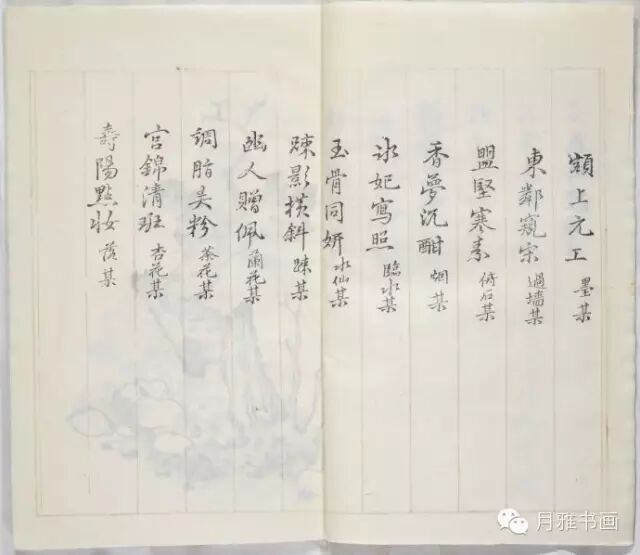 穎上化工 墨某
東鄰窺宋 過墻某
盟堅寒素 倚石某
香夢沉酣 烟某
冰妃寫照 臨水某
玉骨同妍 水仙某
疎影横斜 疎某
幽人贈佩 蘭花某
調脂弄粉 茶花某
宮錦清班 杏花某
壽陽點妝 落某
月雅书画